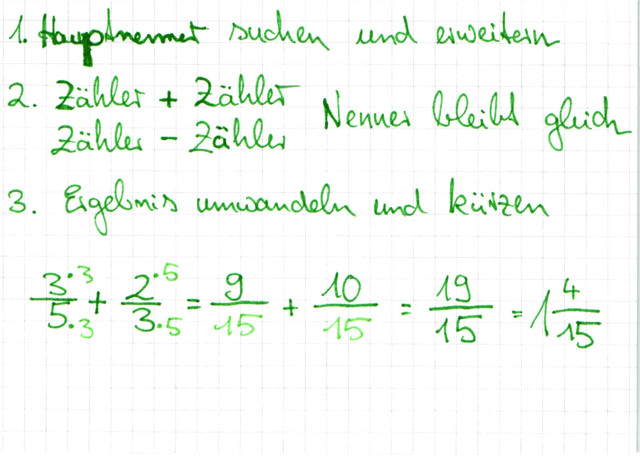 1. Hauptnenner suchen und erweitern
2. Zähler + Zähler
Zähler - Zähler Nenner bleibt gleich
3. Ergebnis umwandeln und kürzen
3·3/5·3 + 2·5/3·5 = 9/15 + 10/15 = 19/15 = 1 4/15